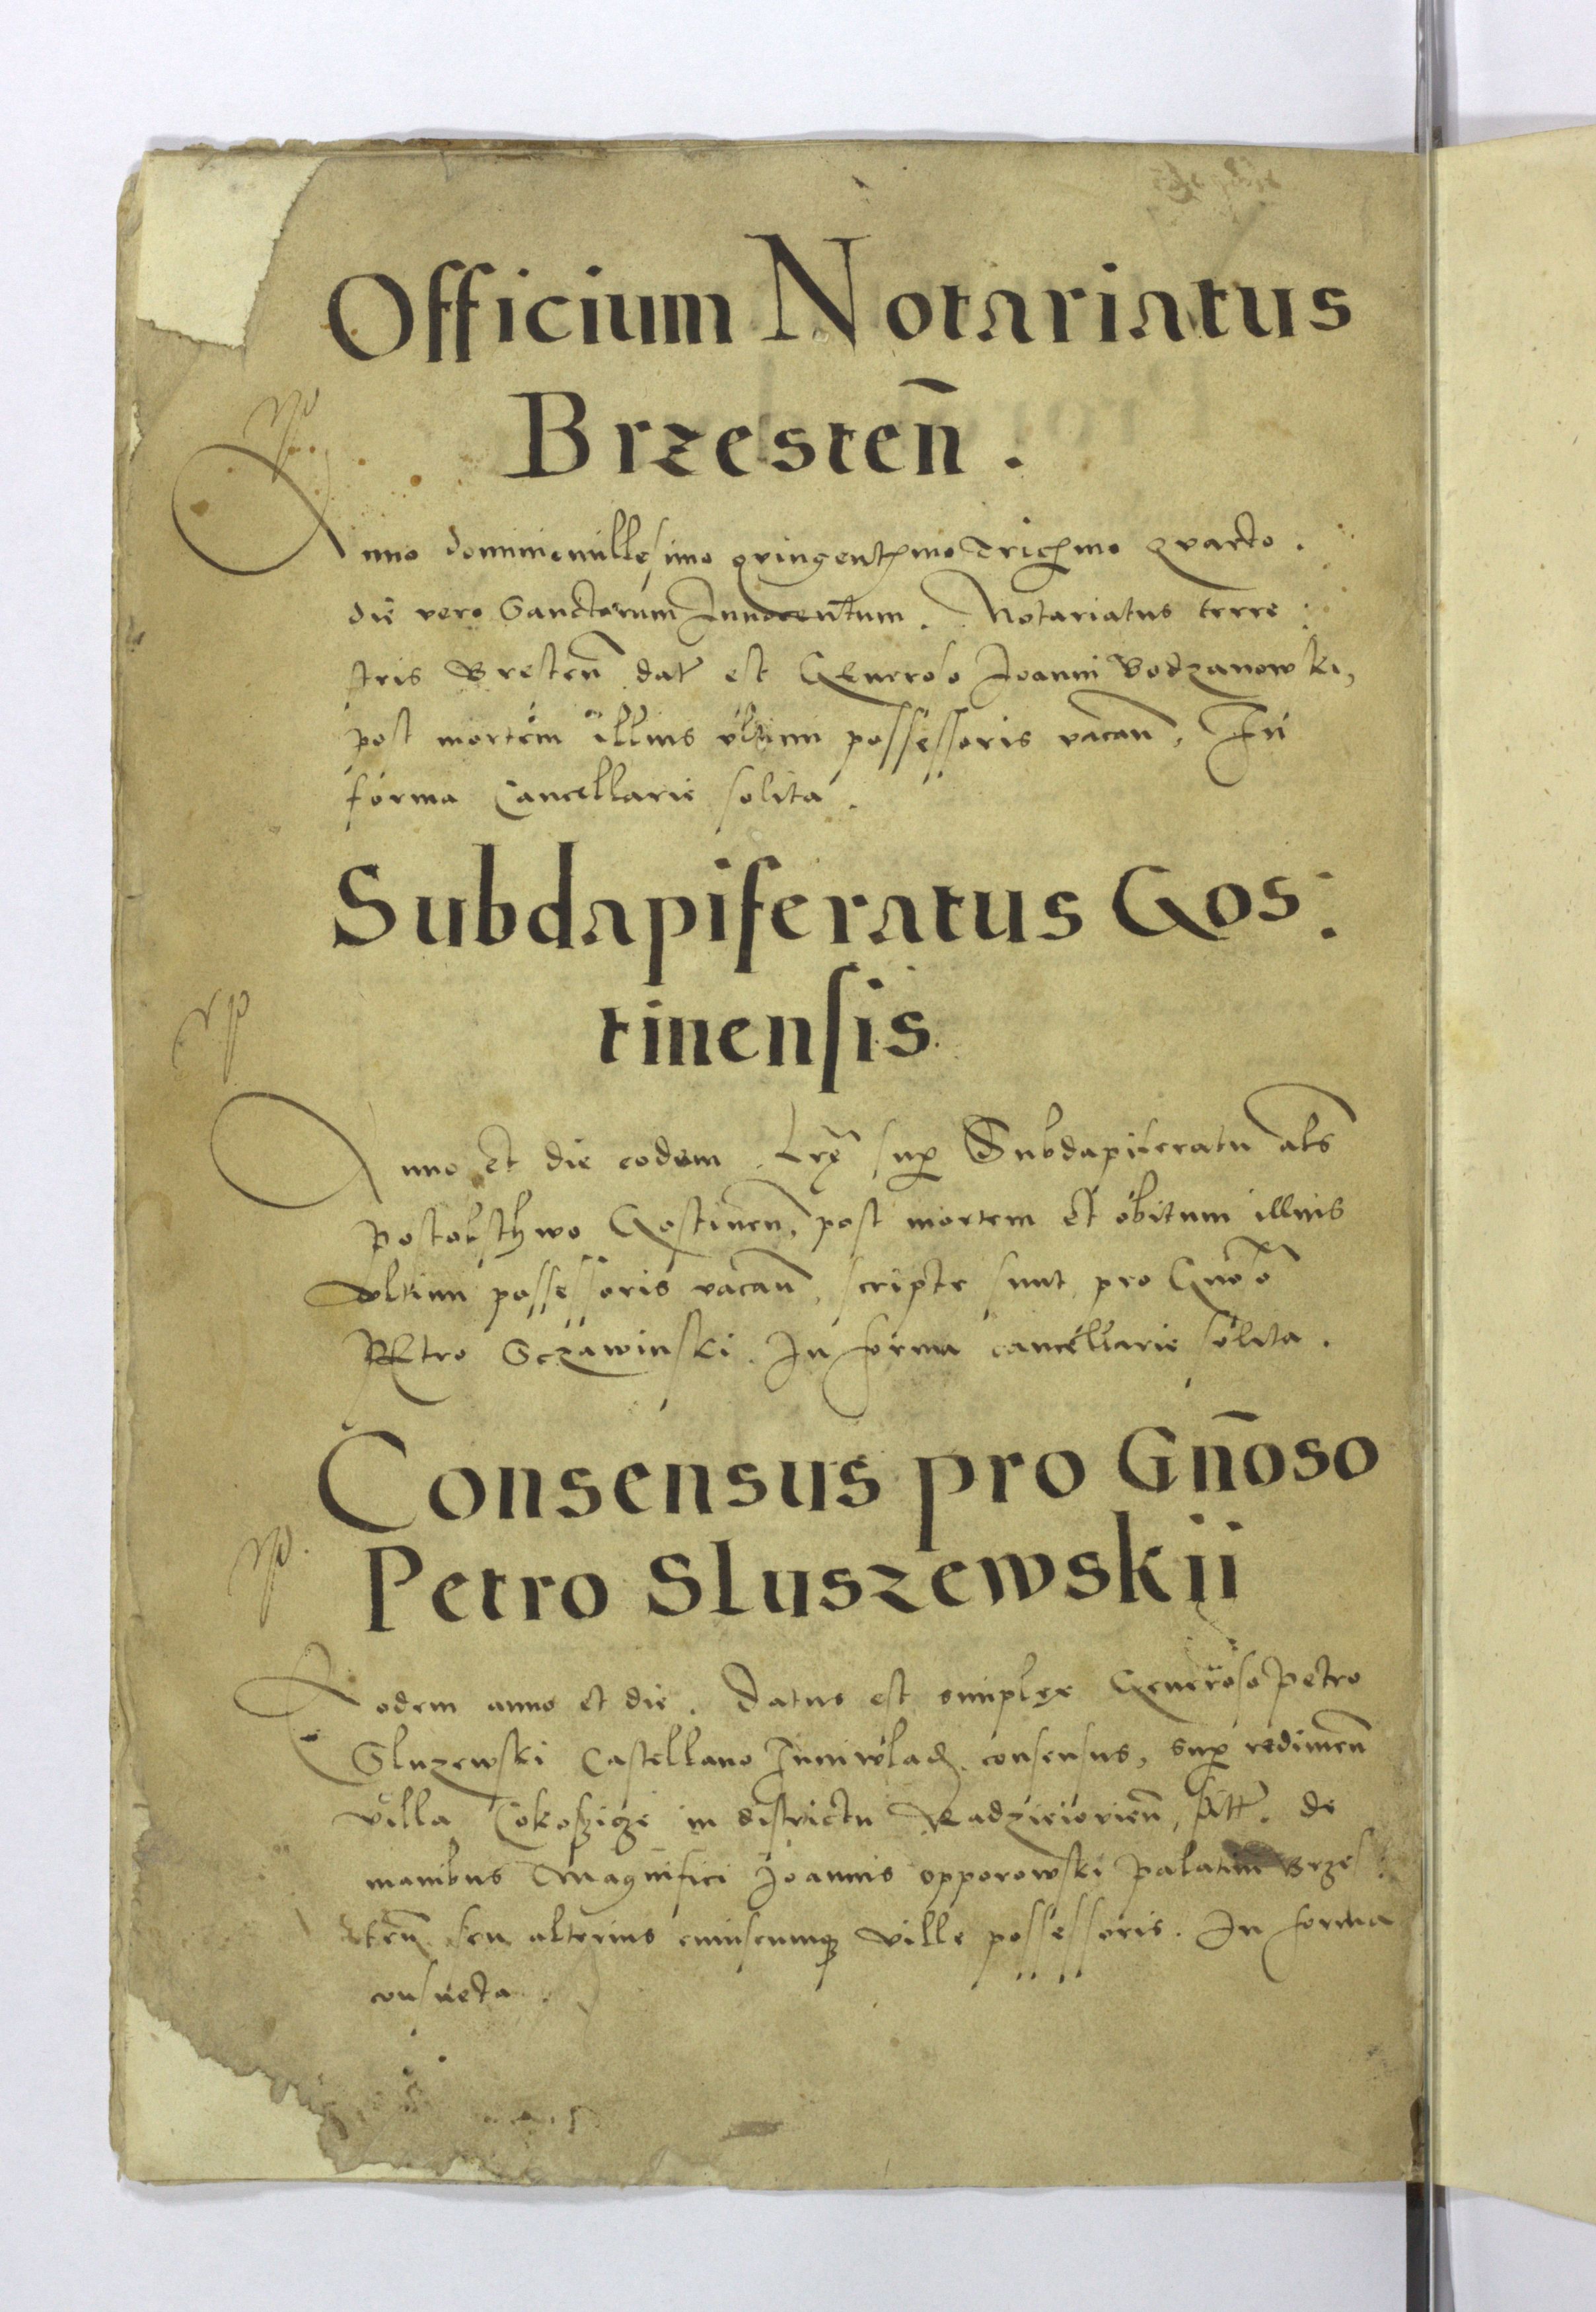 Officium Notariatus
Brzesteñ.
Anno domini millesimo qvingentesimo Tricesimo qvarto.
die vero Sanctorum Innocentum. Notariatus terre:
stris Bresteñ dat' est Generoso Joanni Bodzanowski,
post mortem illius vltimi possessoris vacañ, In
forma Cancellarie solita.
Subdapiferatus Gos:
tinensis
Anno et die eodem Lrę sup Subdapiferatu als
postolsthwo Gostineñ, post mortem et obitum illius
vltimi possessoris vacañ, scripte sunt pro Gnoso
PEtro Sczawinski. In forma cancellarie solita.
Consensus pro Gñoso
Petro Sluszewskii
Eodem anno et die. Datus est simplex Generoso Petro
Sluzewski Castellano Juniwlad. consensus, sup redimeñ
villa in districtu Radzieiorieñ, de
manibus Magnifici Joannis opporowski palatini Brzes:
teñ seu alterius cuiuscumq ville possessoris. In forma
consueta.